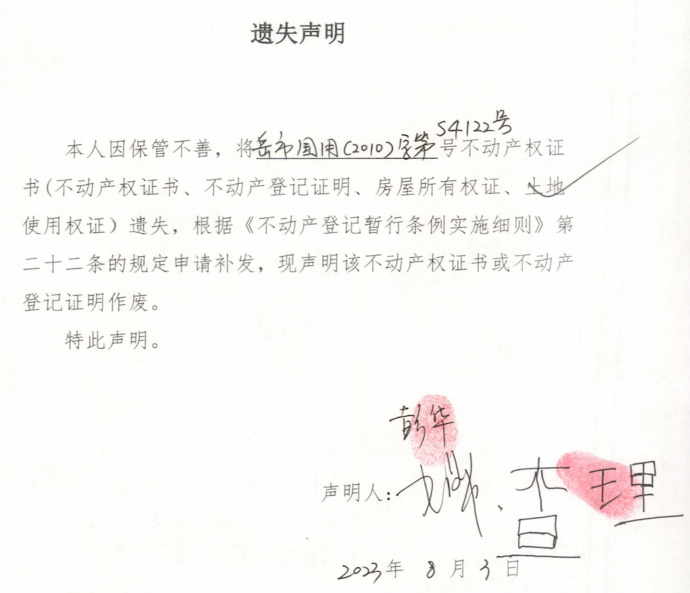 遗失声明
本人因保管不善，将岳市国用(2010)字第S4122号号不动产权证
书(不动产权证书、不动产登记证明、房屋所有权证、土地
使用权证）遗失，根据《不动产登记暂行条例实施细则》第
二十二条的规定申请补发，现声明该不动产权证书或不动产
登记证明作废。
特此声明。
彭华
声明人：、查理
2023年 8月3日